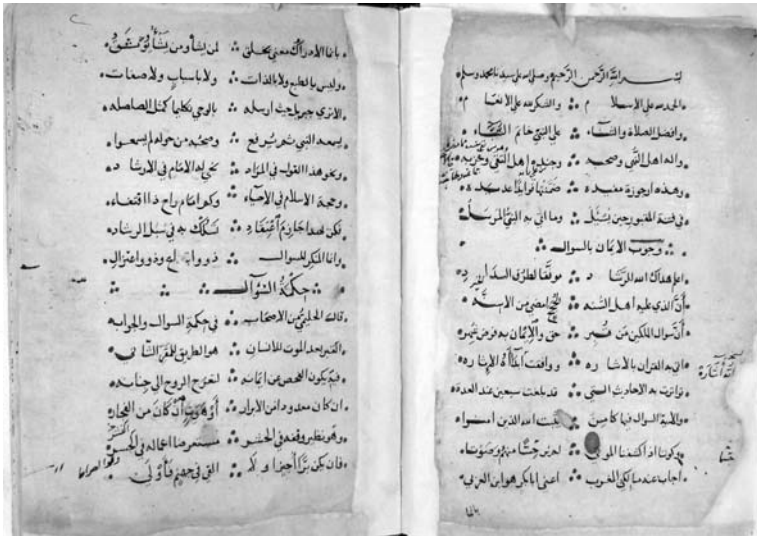 بسم الله الرحمن الرحيم وصلى الله على سيدنا محمد وسلم
الحمد لله على الاسلام ∴ والشكر لله على الانعام
وافضل الصلاة والثناء ∴ على النبي خاتم
واله اهل التقى وصحبه ∴ وجنده اهل النهى وحزبه
وهذه ارجوزة مفيده ∴ ضمنتها فوايدا عديده
في فتنة المقبور حين يسئل ∴ وما اتى به النبي المرسل
∴ وجوب الايمان بالسوال ∴
اعلم هداك الله للرشاد ∴ موفقا لطرق السداد
أن الذي عليه اهل السنه ∴ امضى من الاسنه
أن سوال الملكين من قبر ∴ حق والايمان به فرض شهر
اتى به القران بالاشاره ∴ ووافقت
تواترت به الاحاديث التي ∴ قد بلغت سبعين عند العدة
والآية السوال فيها كامن ∴ يثبت الله الذين امنوا
وكوننا اذا كشفنا الموتى ∴ لم نر حسا منهم وصوتا
اجاب عنه مالكي المغرب ∴ اعنى ابا بكر هو ابن العربي
بانما
بانما الادراك معنى يخلق ∴ لمن يشا ومن يشا يوفق
وليس بالطبع ولا بالذات ∴ ولا باسباب ولا صفات
الا ترى جبريل حيث ارسله ∴ بالوحي تكليما كمثل الصلصله
يسمعه النبي ثم يرفع ∴ وصحبه من حوله لم يسمعوا
ونحو هذا القول في المراد ∴ نحى له الامام في الارشاد
وحجة الاسلام في الاحياء ∴ وكم امام راح ذا اقتفاء
فكن لهذا جازم اعتقاد ∴ تسلك به في سبل الرشاد
وانما المنكر للسوال ∴ ذووا ابتداع وذوو اعتزال
∴ حكمة السؤال ∴ ∴ ∴
قال الحليمي من الاصحاب ∴ في حكمة السوال والجواب
القبر بعد الموت للانسان ∴ هو الطريق للمقر الثاني
فيه يكون الفحص عن ايمانه ∴ لتعرج الروح الى جنانه
ان كان معدودا من الابرار ∴ أو هويت أن كان من الفجار
وهو نظير وقفه في الحشر ∴ مستعرضا اعماله في الجسر
فان يكن برا أجيز اولا ∴ القي في جحيم فأولى